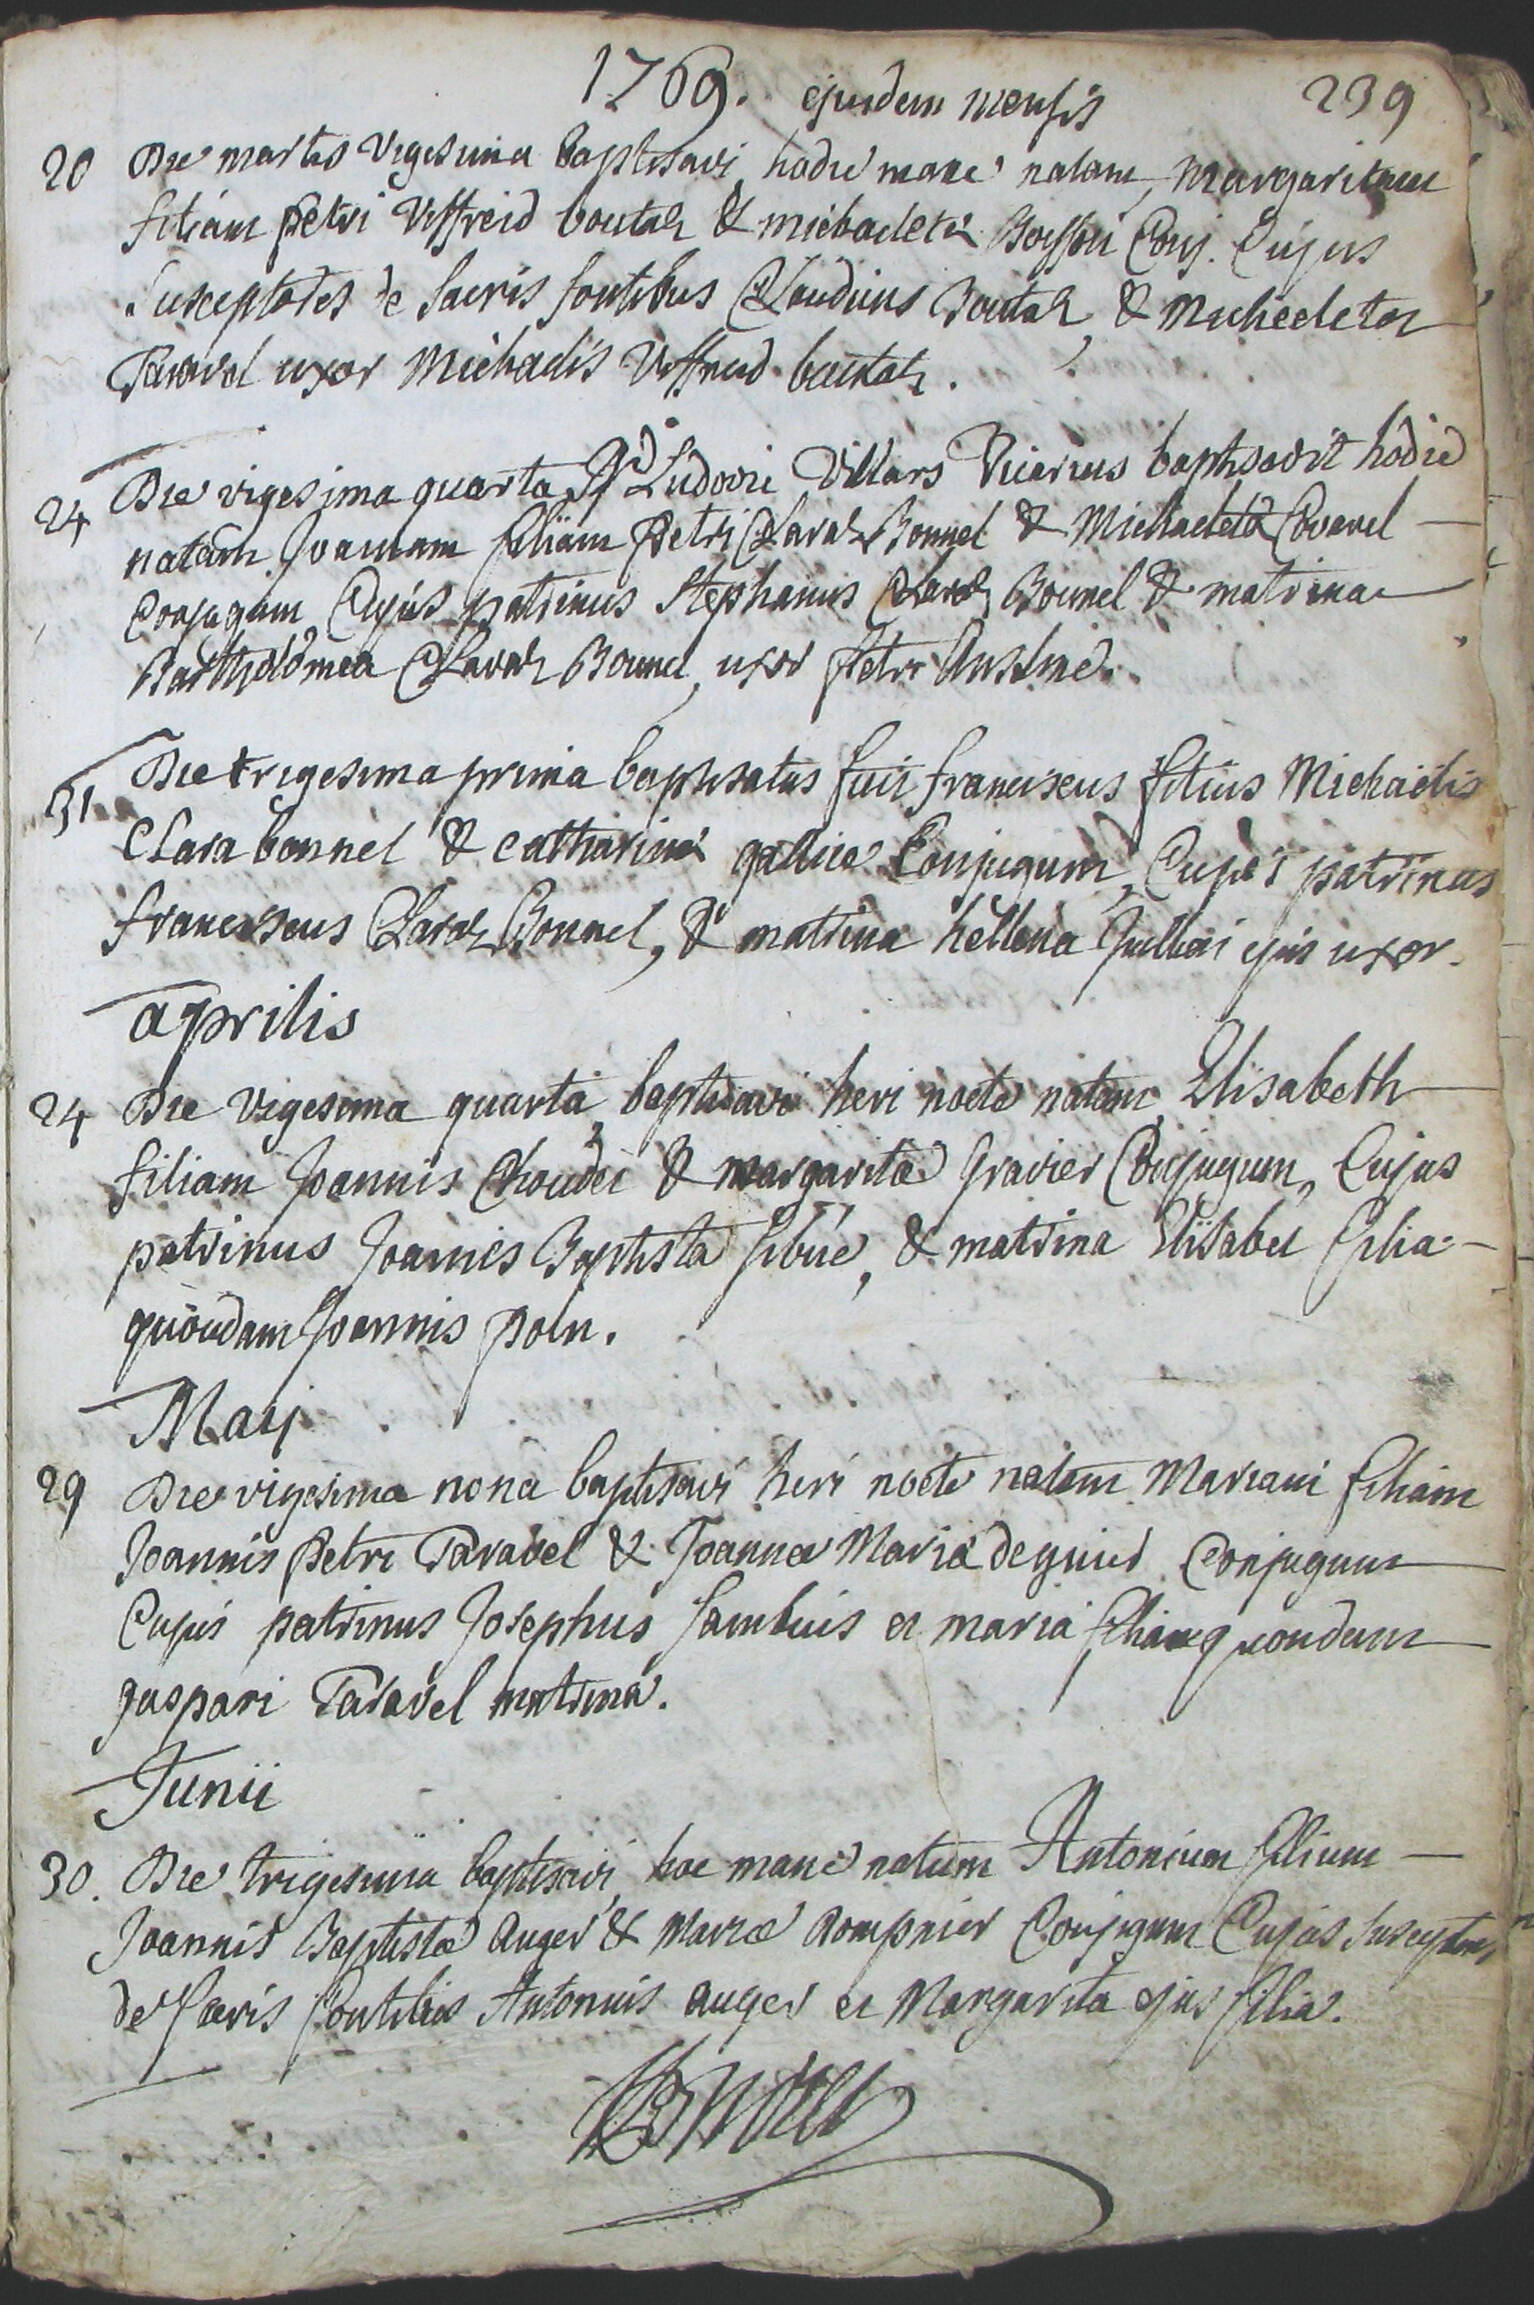 1769. ejusdem mensis 239
20 Die martis vigesima baptisavi hodie mane natam, Margaritam
filiam petri Uffreid boutaz & michaeletæ Conj. Cujus
Susceptores de sacris fontibus Claudius Boutaz, & Micheleta
Taravel uxor Michaelis Uffreid boutaz.
24 Die vigesima quarta Rd Ludovic Villars Vicarius baptisavit hodie
natam Joannam filiam Petri Claraz Bonnel & Michaeletæ Covarel
Conjugum Cujus patrinus Stephanus Claraz Bonnel & matrina
Bartholomea Claraz Bonnel, uxor petri Anselme.
31 Die trigesima prima baptisatus fuit franciscus filius Michaelis
Clara bonnel & catharinæ gallice Conjugum, Cujus patrinus
franciscus Claraz Bonnel, & matrina hellena Jullien ejus uxor.
aprilis
24 Die vigesima quarta, baptisavi heri nocte natam Elisabeth
filiam Joannis Choudei & margaritæ Gravier Conjugum, Cujus
patrinus Joannes Baptista Sibué, & matrina Elisabet filia
quondam Joannis poin.
Maij
29 Die vigesima nona baptisavi heri nocte natam Mariam filiam
Joannis Petri Taravel & Joannæ Mariæ Conjugum
Cujus patrinus Josephus Sambuis et maria filia quondam
gaspari Taravel matrina.
Junii
30. Die trigesima baptisavi hoc mane natum Antonium filium
Joannis Baptistæ auger & Mariæ Rompnier Conjugum Cujus Susceptores
de sacris fontibus Antonius auger et Margarita ejus filia.